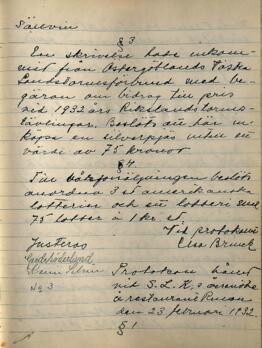 Särevin
§ 3
En skrivelse hade inkom-
mit från Östergötlands Västra
Landstormsförbund med be-
gäran om bidrag till pris
vid 1932 års Rikslandstorms-
tävlingar. Beslöts att här
köpa en silverpjäs till ett
värde av 75 kronor
§ 4.
Till försäljningen beslöts
anordna 3 st amerikanska
lotterier och ett lotteri med
75 lotter à 1 kr. st
Vid protokollet
Elsa Brunck
Justeras
Söderlund
№ 3
Protokoll
vid S.L.K.s årsmöte
å restaurant
den 23 februari 1932.
§ 1